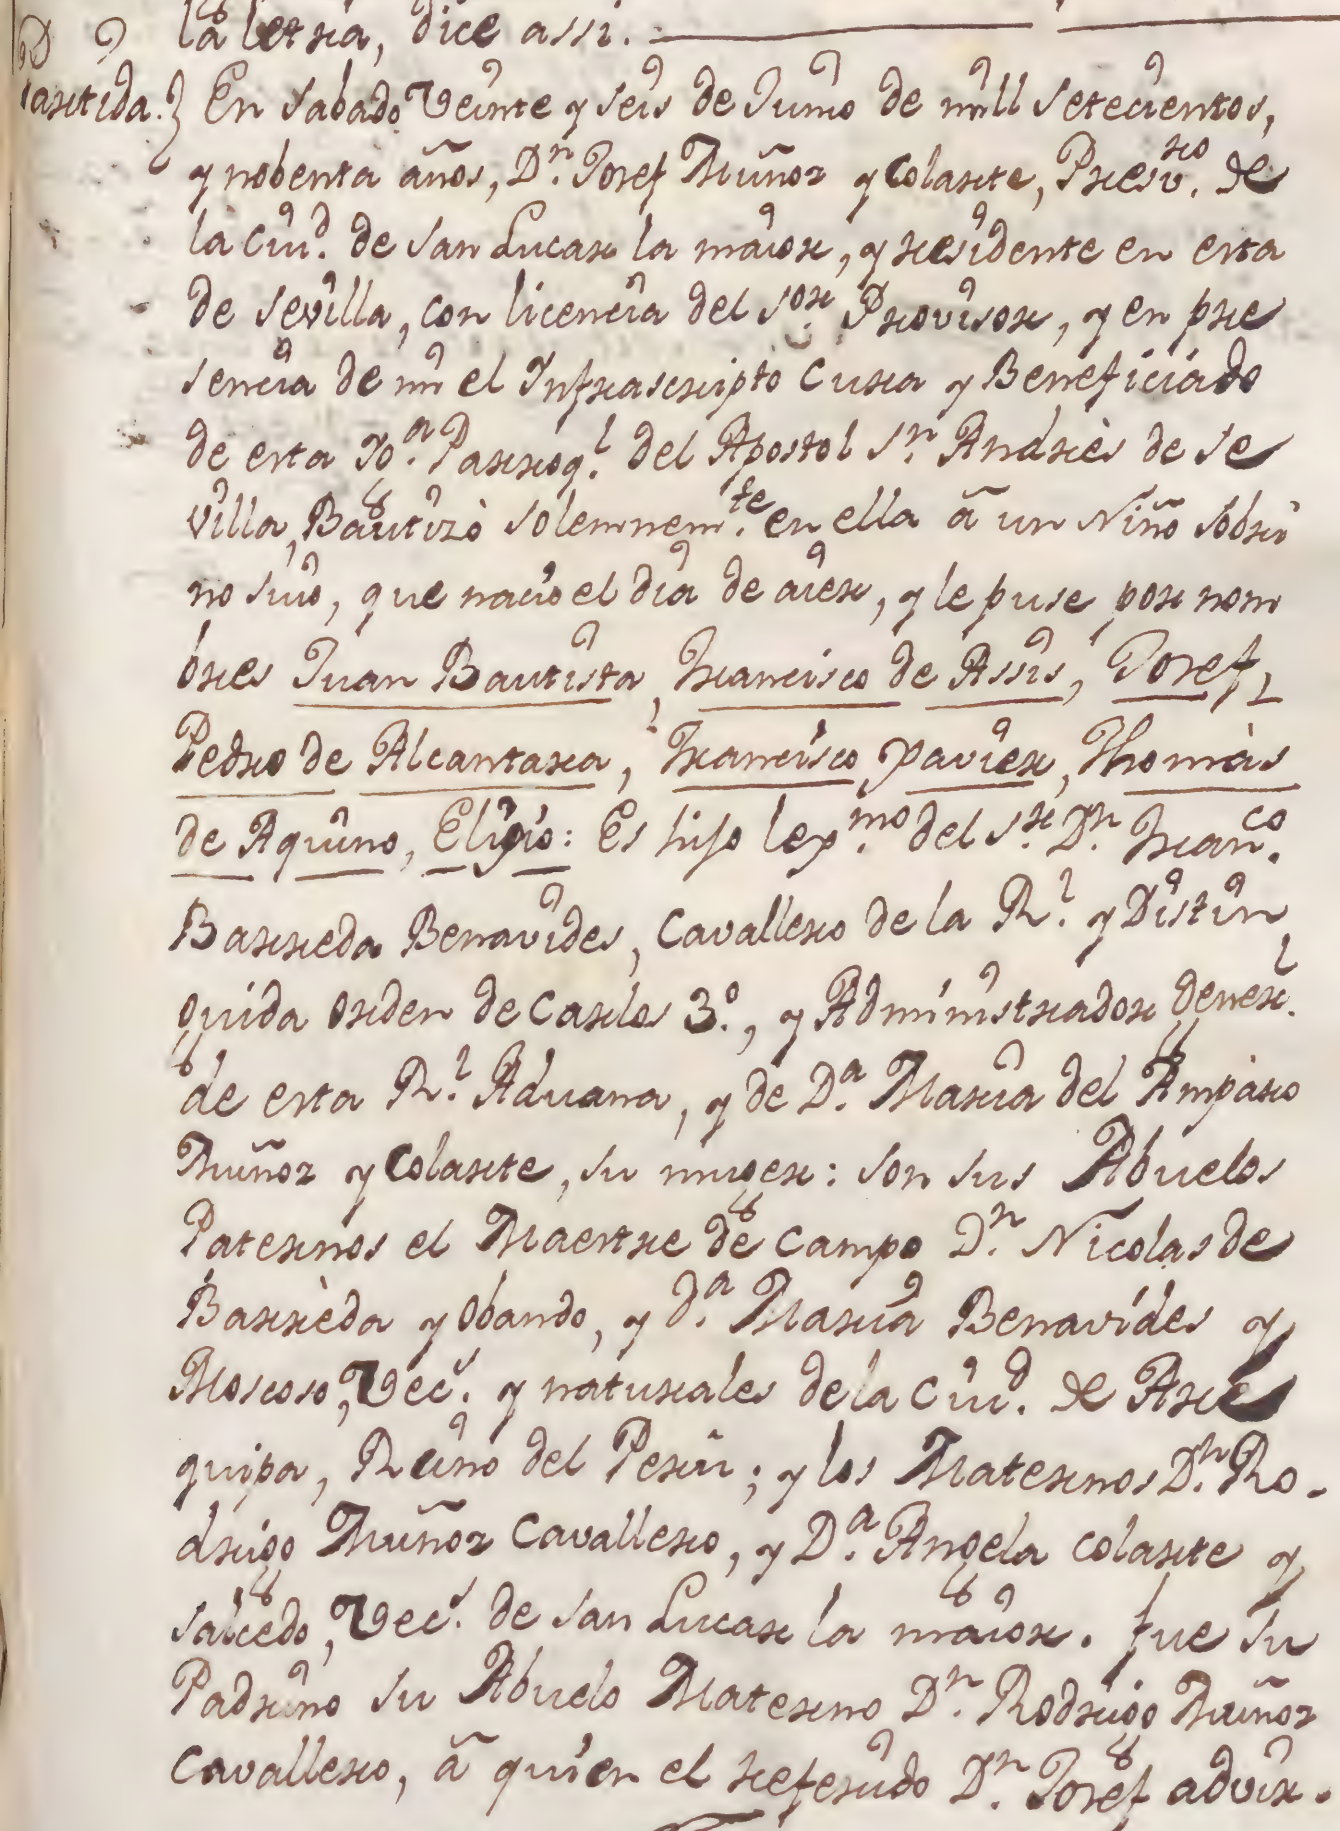 la letra, dice assi.
Partida. En Sabado Veinte y seis de Junio de mill setecientos,
y nobenta años, Dn. Josef Muñoz y Colarte, Presvro. de
la Ciud. de San Lucar la maior, y residente en esta
de Sevilla, con licencia del Sor. Provisor, y en pre
sencia de mi el Infrascripto Cura y Beneficiado
de esta Yga. Parroql. del Apostol Sn. Andrès de Se
villa, Bautizò solemnemte. en ella â un Niño sobri
no suio, que nacio el dia de aier, y le puse por nom
bres Juan Bautista, Francisco de Assis, Josef,
Pedro de Alcantara, Francisco Xavier, Thomàs
de Aquino, Eligio: Es hijo lexmo. del Sr. Dn. Franco.
Barreda Benavides, Cavallero de la Rl. y Distin
guida orden de Carlos 3o., y Administrador Generl.
de esta Rl. Aduana, y de Da. Maria del Amparo
Muñoz y Colarte, su muger: son sus Abuelos
Paternos el Maestre de Campo Dn. Nicolas de
Barrèda y Obando, y da. Maria Benavídes y
Moscoso, Vecs. y naturales de la Ciud. de Are
quipa, Reino del Perù; y los Maternos Dn. Ro-
drigo Muñoz Cavallero, y Da. Angela Colarte y
Salcedo, Vecs. de San Lucar la maior. fue su
Padrino su Abuelo Materno Dn. Rodrigo Muñoz
Cavallero, â quien el referido Dn. Josef advir-